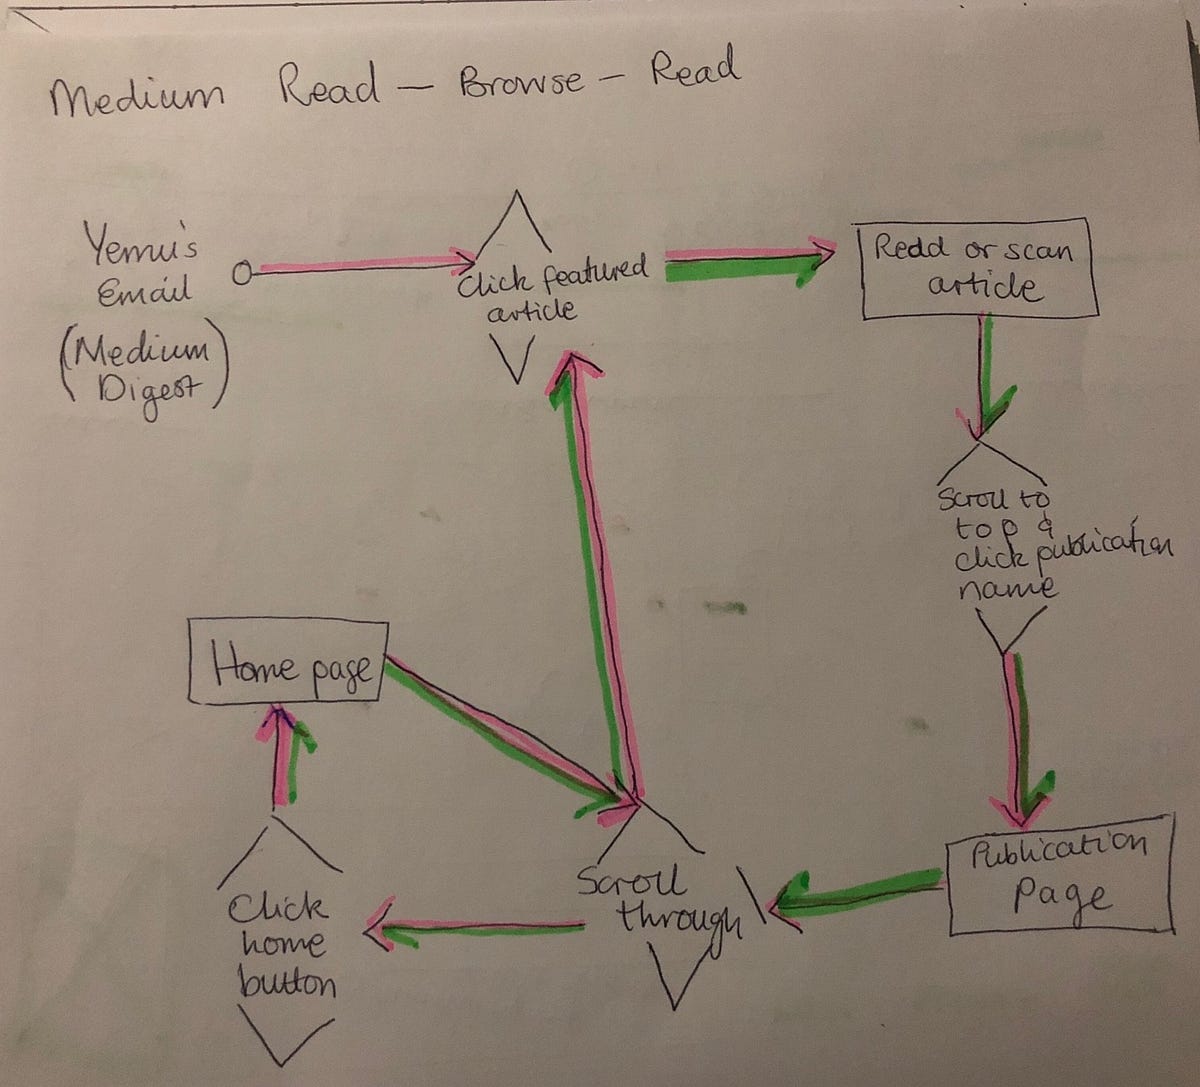 Medium Read - Browse - Read
Yemi's
Email
(Medium
Digest)
Click featured
article
Redd or scan
article
Scroll to
top &
click publication
name
Publication
Page
Scroll
through
Click
home
button
Home page